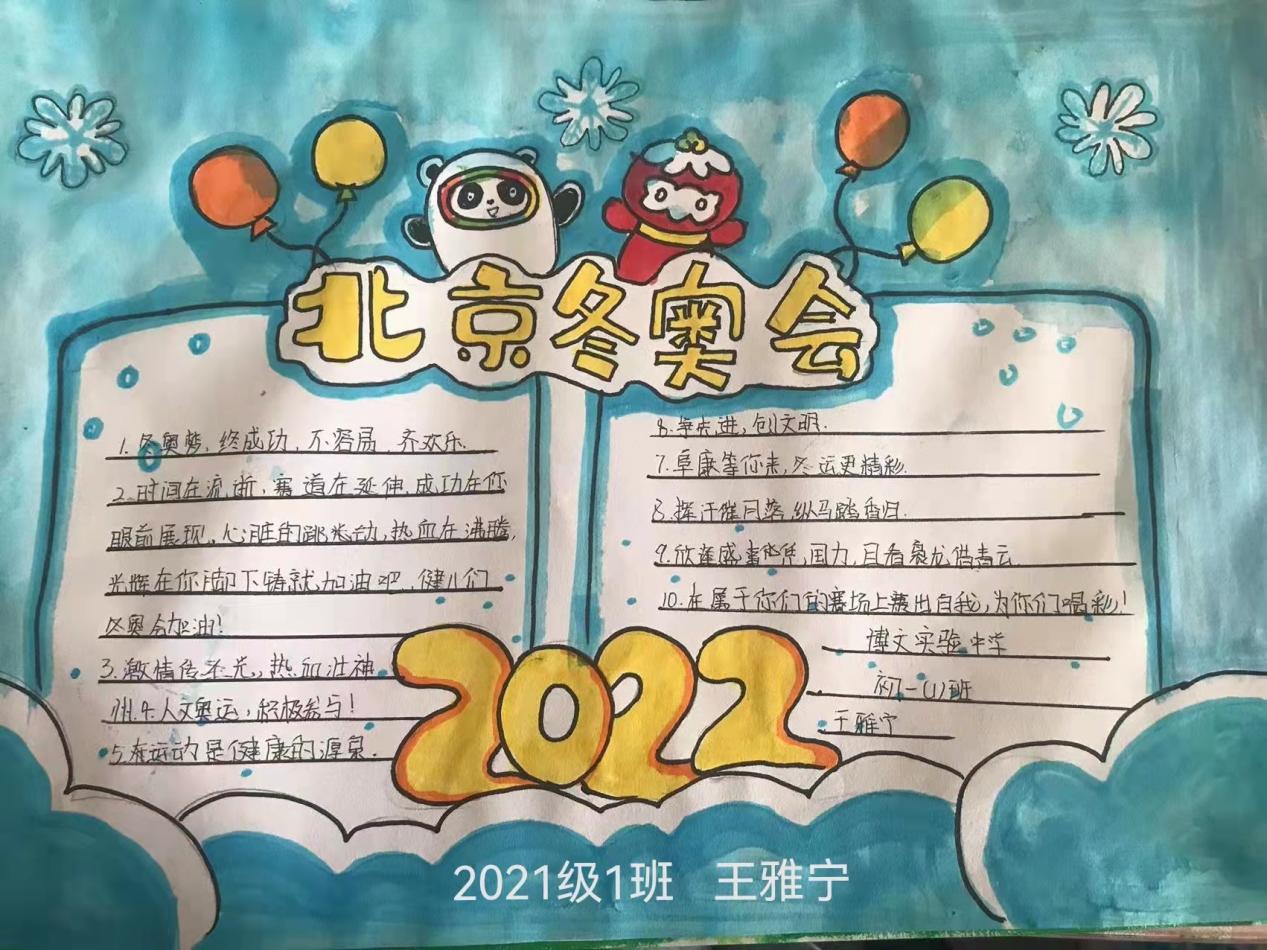 北京冬奥会
1.冬奥梦,终成功,不容易,齐欢乐.
2.时间在流逝,赛道在延伸,成功在你
眼前展现,心脏的跳动,热血在沸腾,
光辉在你脚下铸就加油吧,健儿们
冬奥会加油!
3.激情传圣元,热血壮神
州.4.人文奥运,积极参与!
5.在运动是健康的源泉.
6.争先进,创文明.
7.阜康等你来,冬运更精彩.
8.挥汗催月落,纵马踏香归.
9.欣逢盛事 国力,且看袅龙借青云.
10.在属于你们的赛场上赛出自我,为你们喝彩!
博文实验中学
初一(1)班
王雅宁
2022
2021级1班 王雅宁